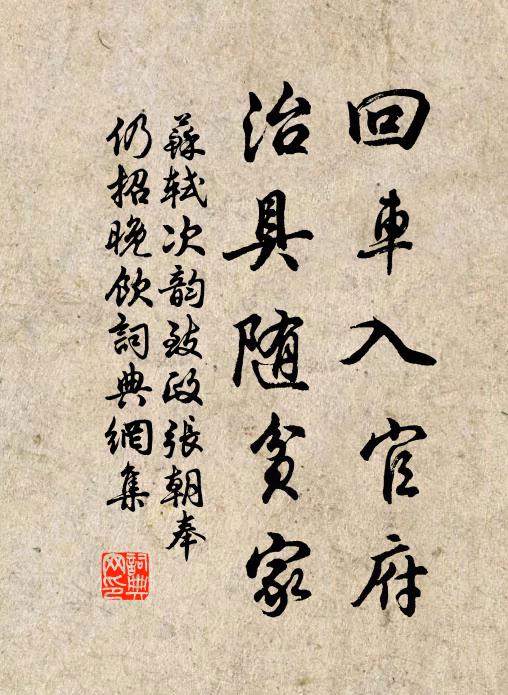 回車入官府
治具随貧家
蘇軾次韵致政張朝奉
仍招晚飲詞典網集
詞典
网印